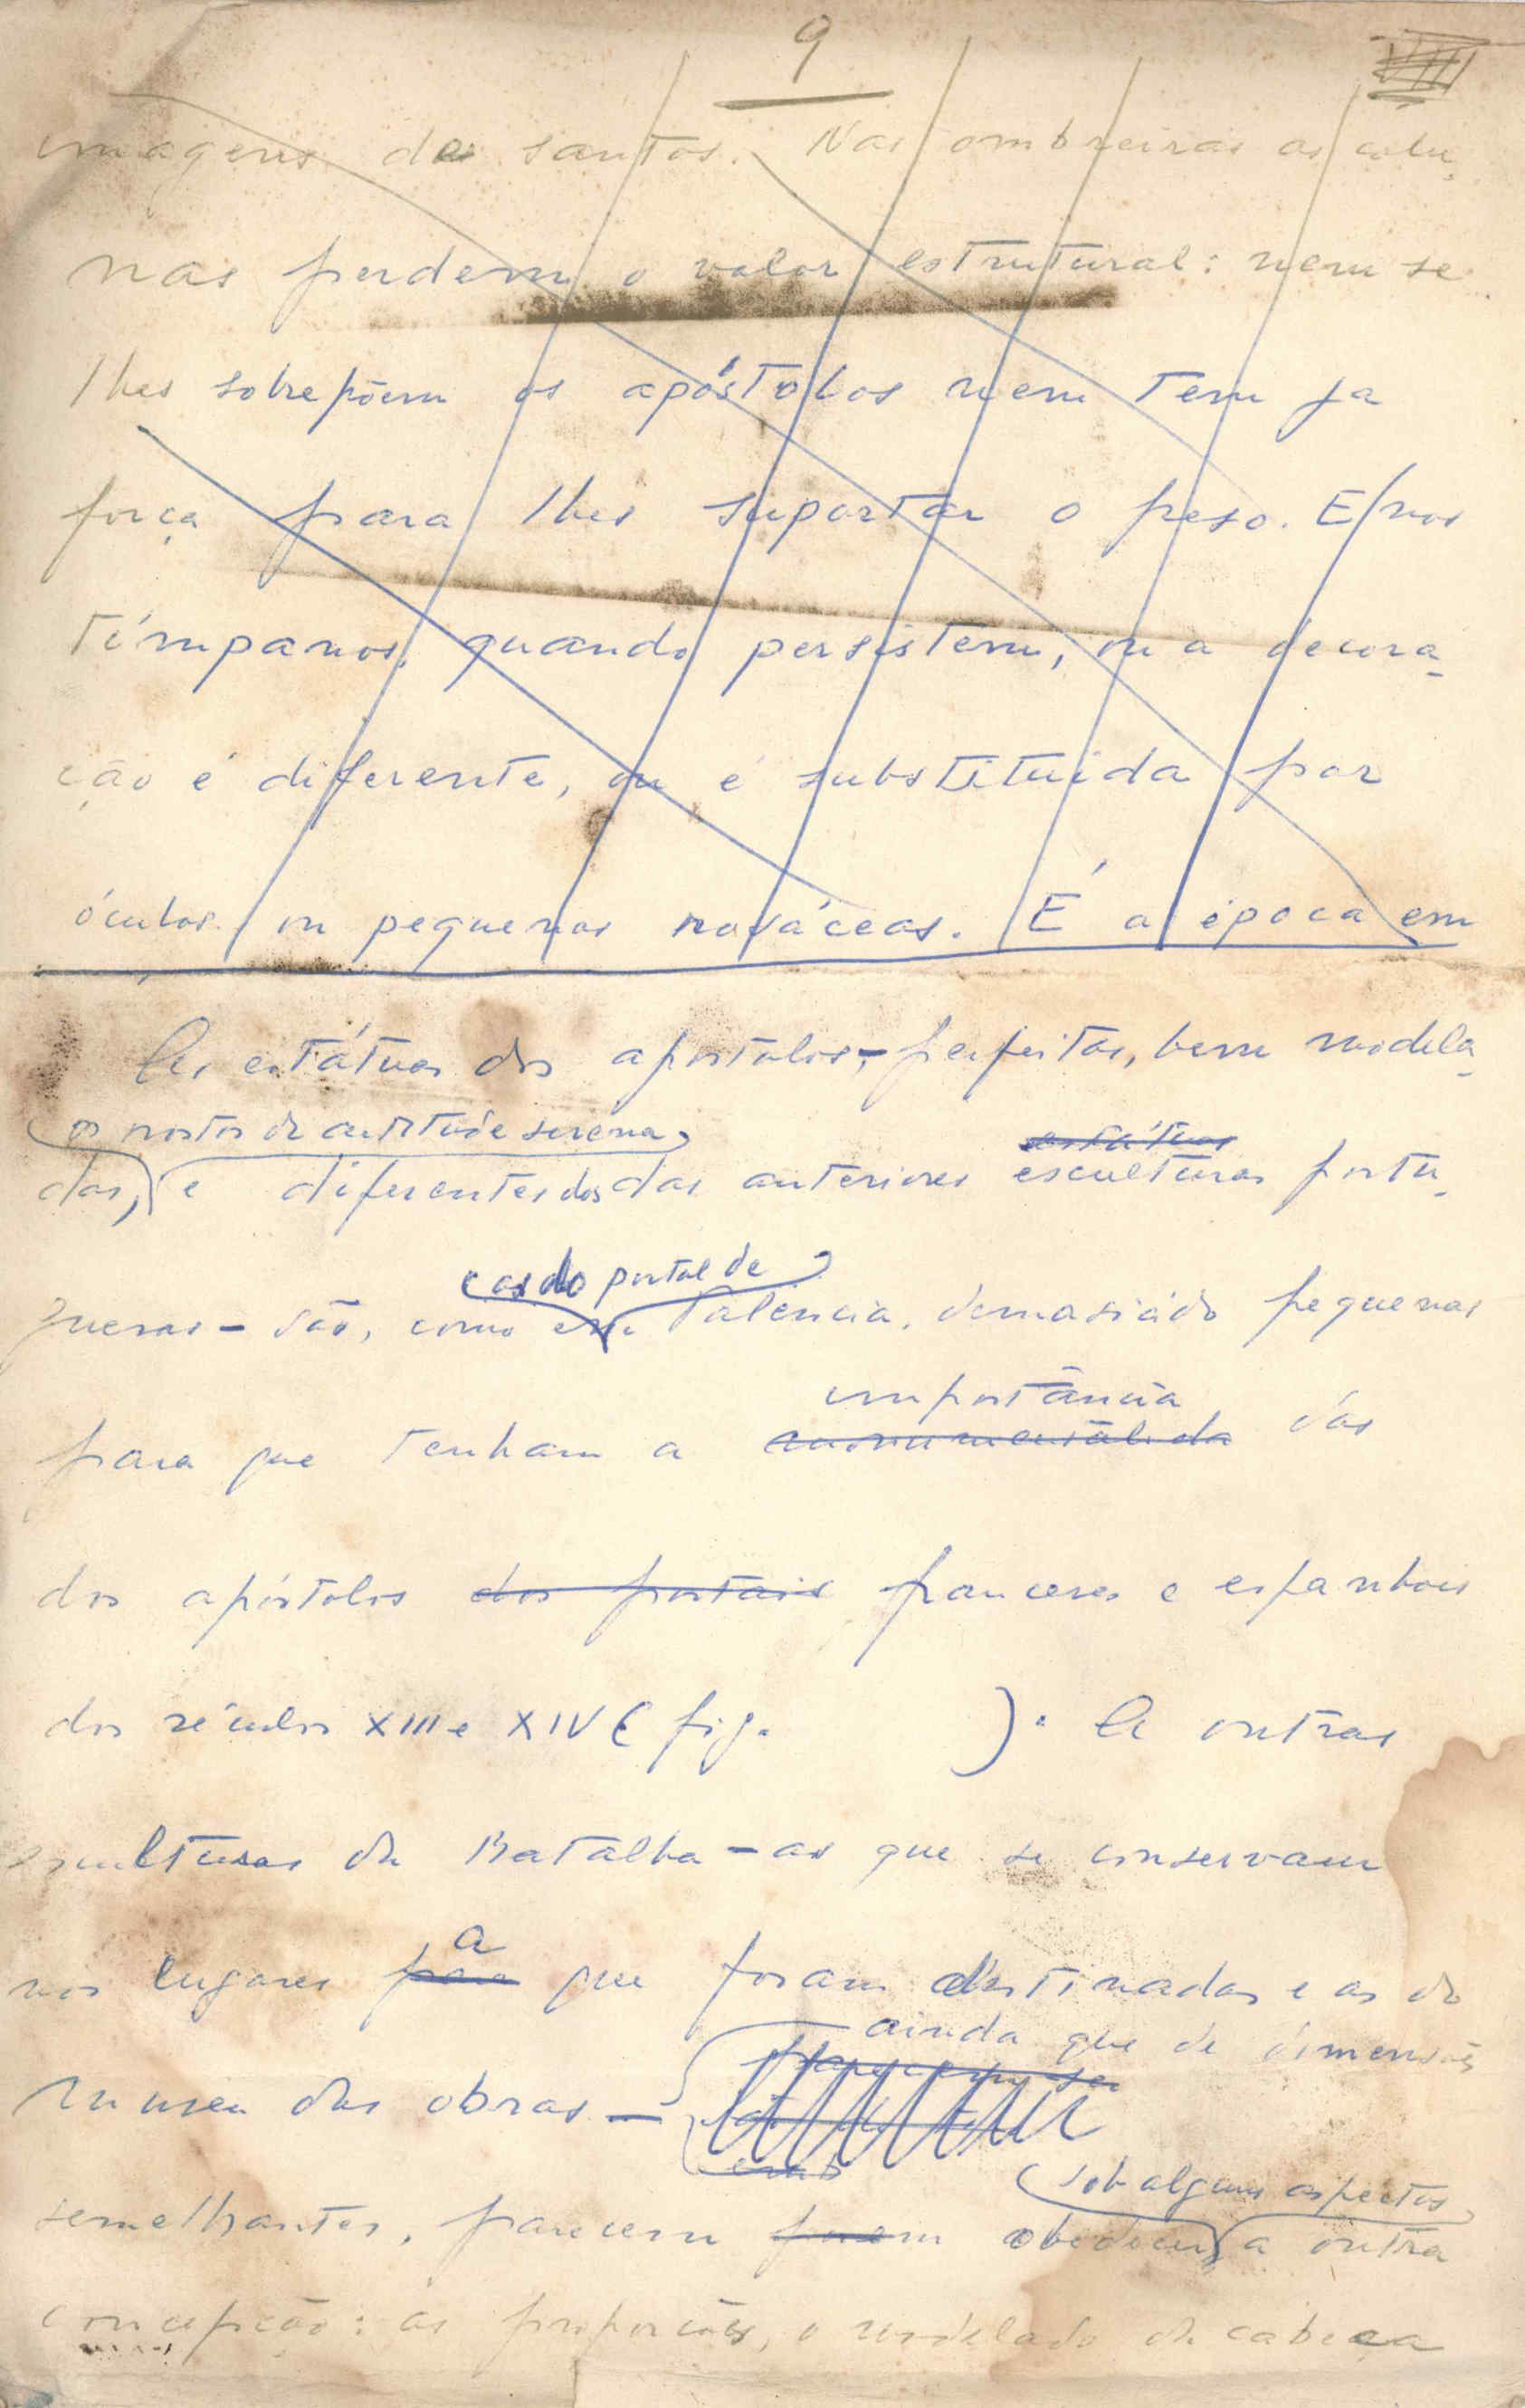 9
imagens de santos. Nas ombreiras as colu-
nas perdem o valor estrutural: nem se
lhes sobrepõem os apóstolos nem tem ja
força para lhes suportar o peso. E nos
tímpanos, quando persistem, ou a decora-
ção é diferente, ou é substituída por
óculos ou pequenas rosáceas. É a época em
As estátuas dos apostolos, - perfeitas, bem modela-
os rostos de attitude serena,
estátuas
das, e diferentes dos das anteriores esculturas portu-
as do portal de
guesas - são, como em Valencia, demasiádo pequenas
importância
para que tenham a monumentalida das
dos apóstolos dos portais franceses e espanhois
dos séculos XIII e XIV ( fig. ). As outras
esculturas da Batalha - as que se conservam
a
nos lugares para que foram destinadas e as do
ainda que de dimensões
parecem ser
museu das obras -
semelhantes, parecem obedecer a outra
sob alguns aspectos
concepção: as proporções, o modelado da cabeça